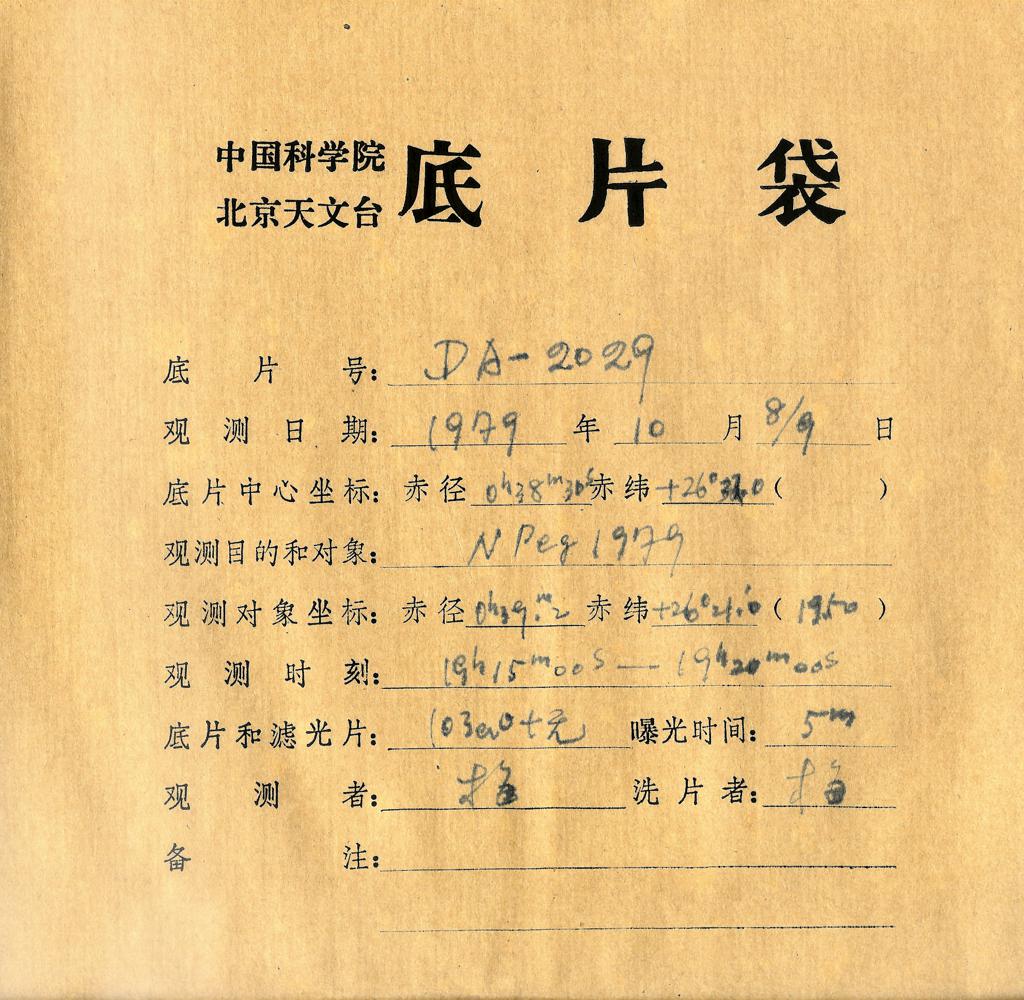 中国科学院
北京天文台
底片袋
底片号: DA-2029
观测日期: 1979 年 10 月 8/9 日
底片中心坐标: 赤径 0h38m30s 赤纬 +26° ( )
观测目的和对象: N Peg 1979
观测对象坐标: 赤径 0h39.m2 赤纬 +26°21.'0 ( 1950 )
观测时刻: 19h15m00s — 19h20m00s
底片和滤光片: 103aO+无 曝光时间: 5m
观测者: 梅 洗片者: 梅
备注: